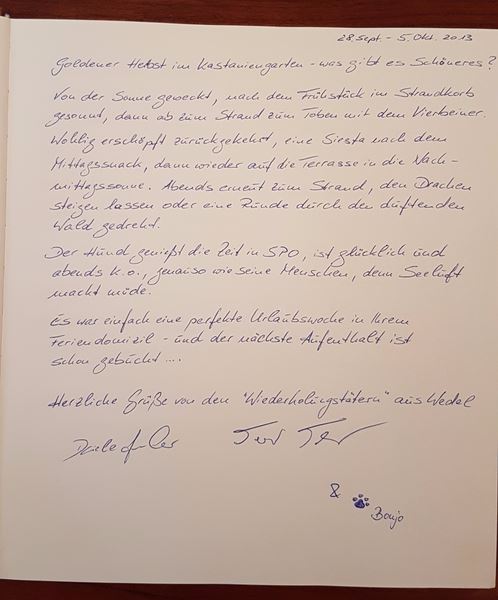 28. Sept. - 5. Okt. 2013
Goldener Herbst im Kastaniengarten - was gibt es Schöneres?
Von der Sonne geweckt, nach dem Frühstück im Strandkorb
gesonnt, dann ab zum Strand zum Toben mit dem Vierbeiner.
Wohlig erschöpft zurückgekehrt, eine Siesta nach dem
Mittagssnack, dann wieder auf die Terrasse in die Nach-
mittagssonne. Abends erneut zum Strand, den Drachen
steigen lassen oder eine Runde durch den duftenden
Wald gedreht.
Der Hund genießt die Zeit in SPO, ist glücklich und
abends k.o., genauso wie seine Menschen, denn Seeluft
macht müde.
Es war einfach eine perfekte Urlaubswoche in Ihrem
Feriendomizil - und der nächste Aufenthalt ist
schon gebucht ....
Herzliche Grüße von den "Wiederholungstätern" aus Wedel
& Banjo